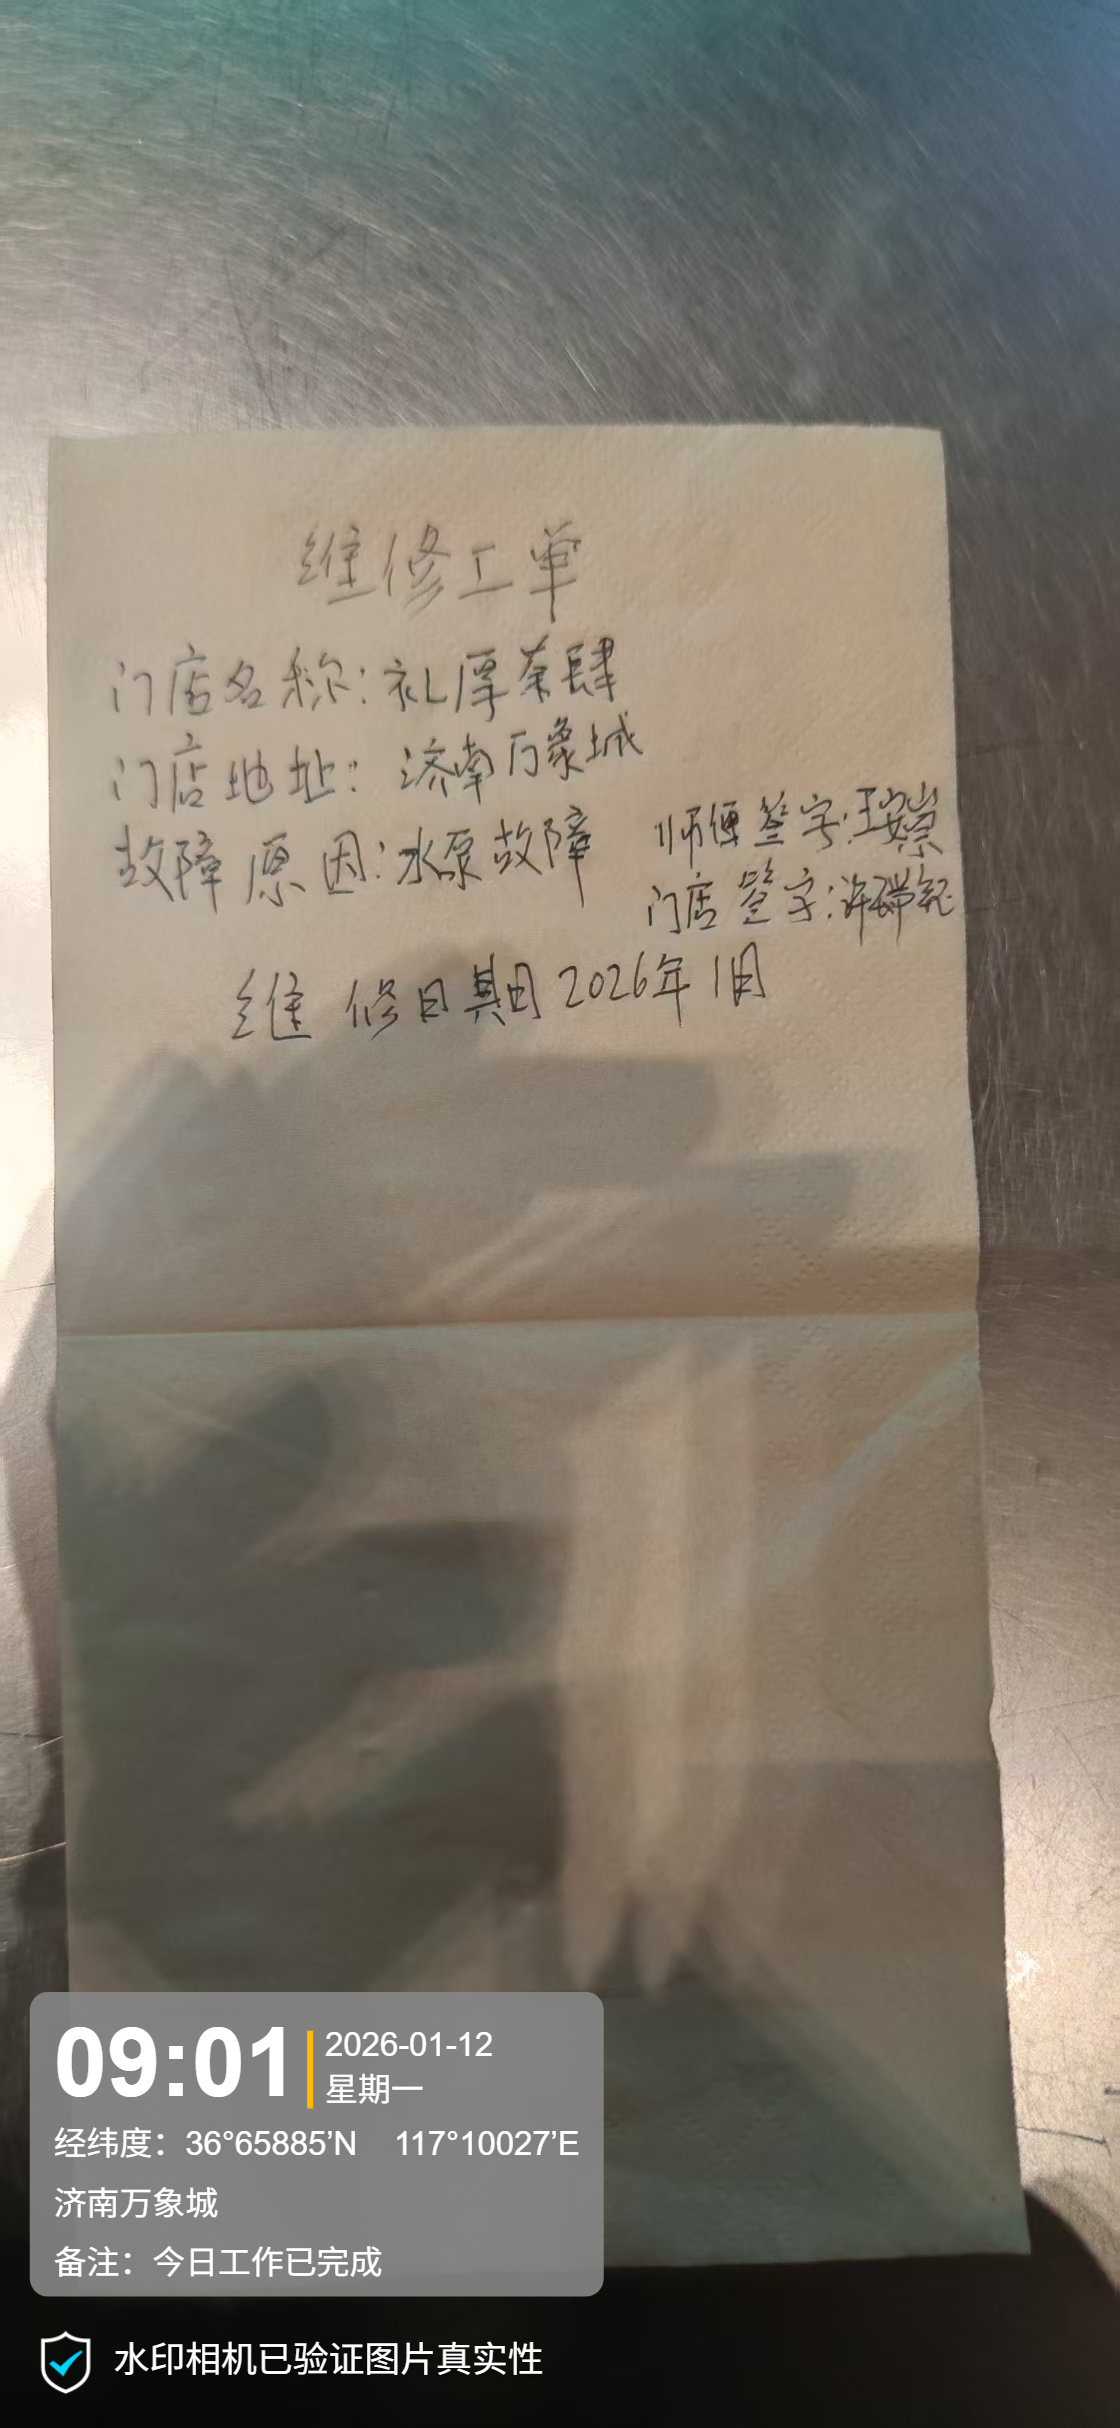 维修工单
门店名称:礼厚茶肆
门店地址:济南万象城
故障原因:水泵故障
师傅签字:王
门店签字:许瑞
维修日期2026年1月
09:01
2026-01-12
星期一
经纬度：36°65885’N 117°10027’E
济南万象城
备注：今日工作已完成
水印相机已验证图片真实性